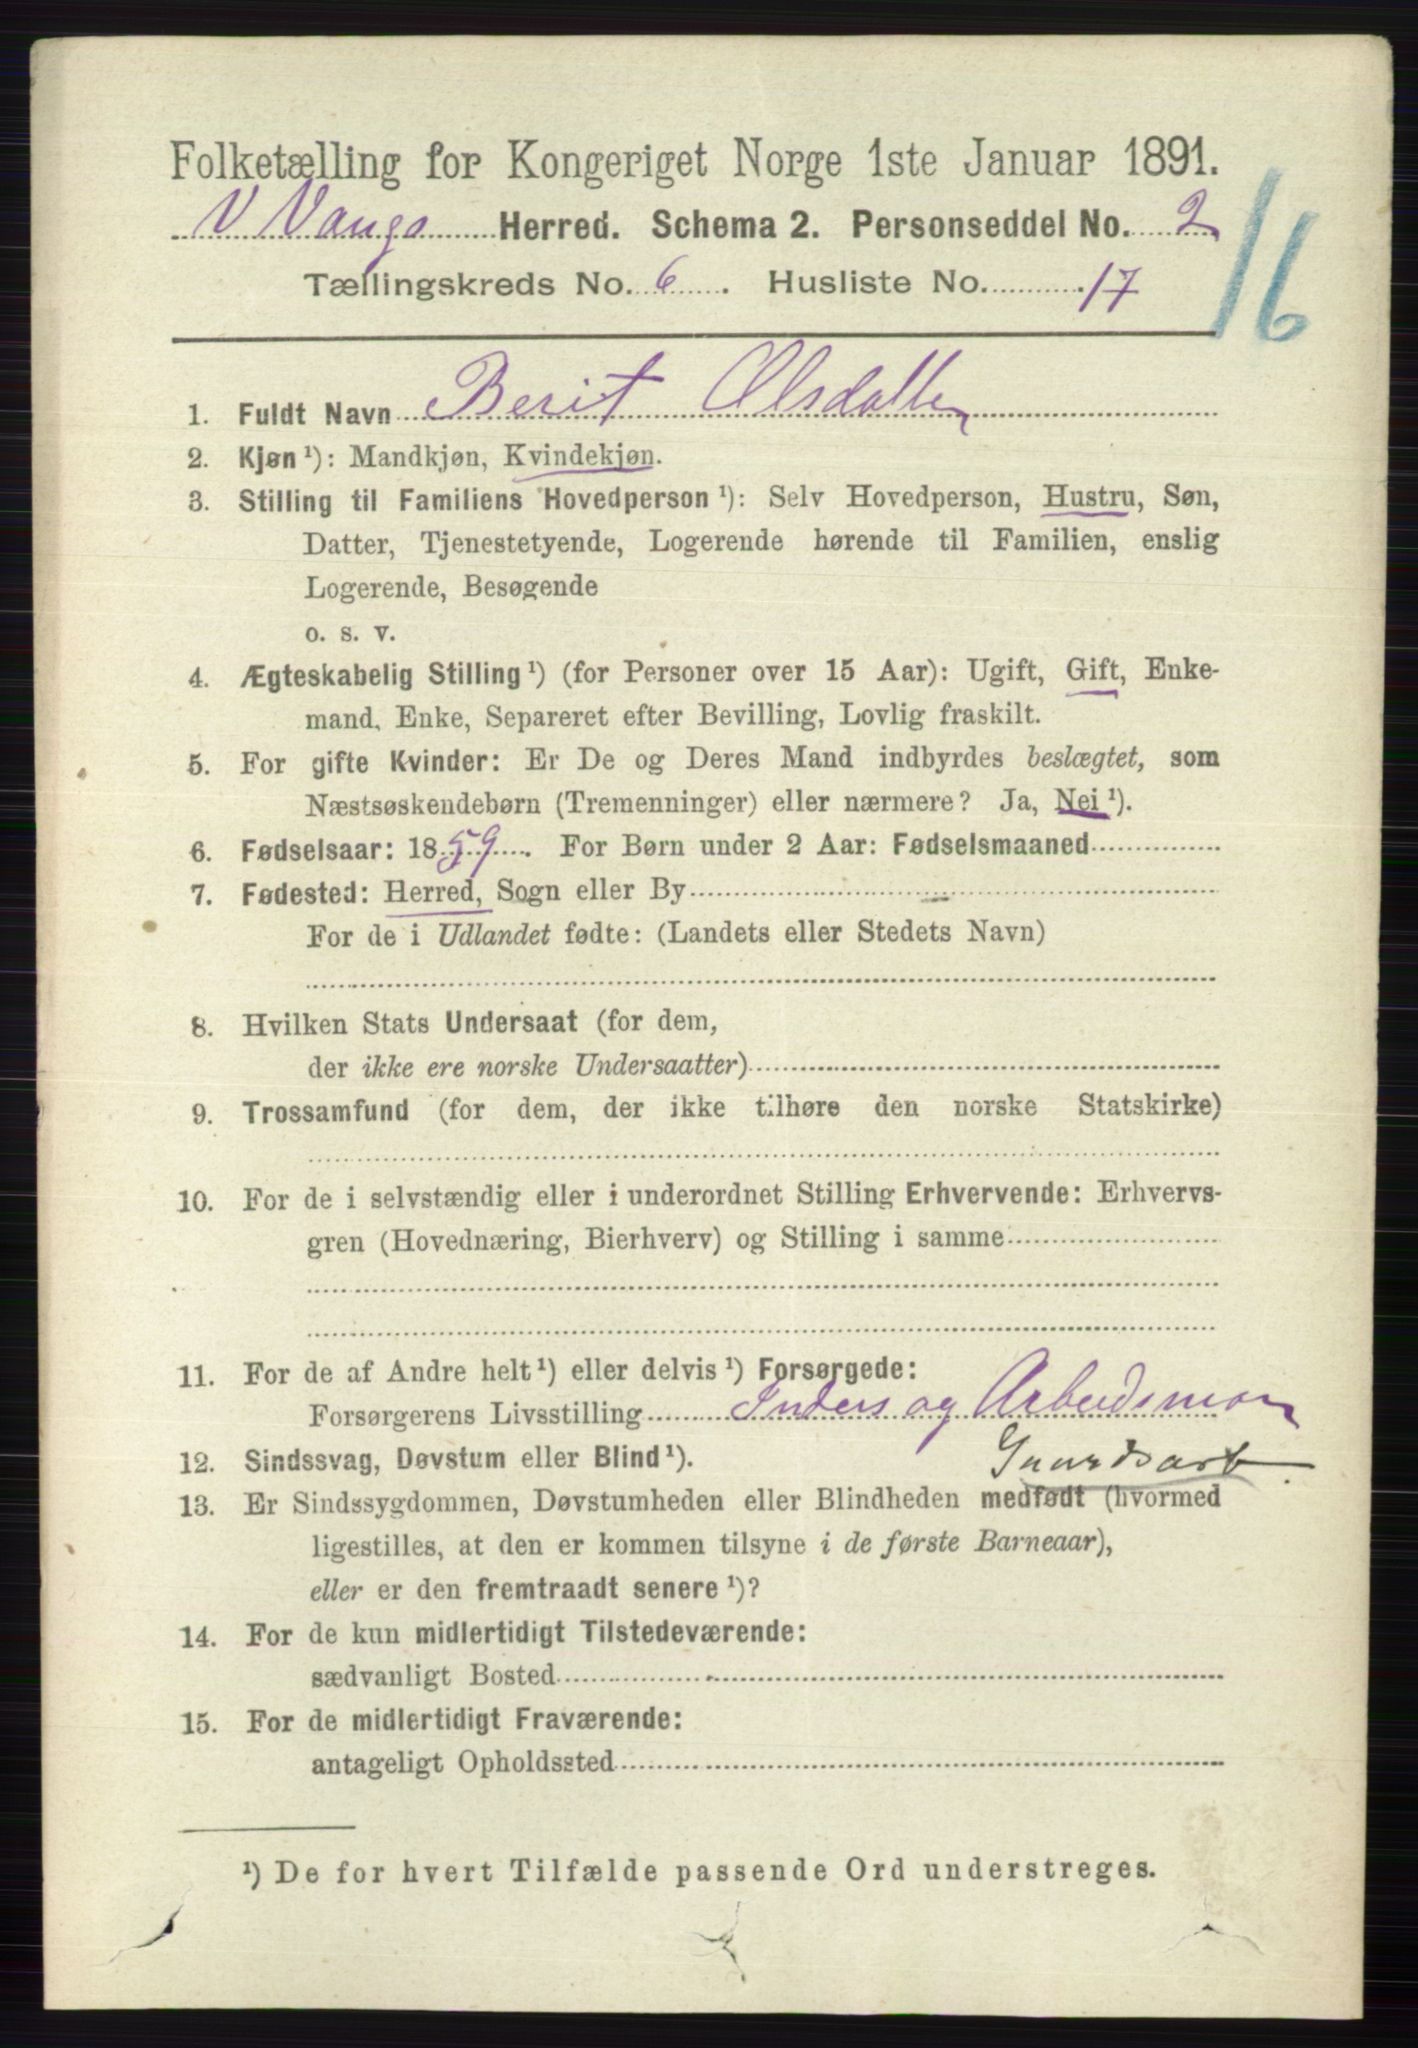 Folketælling for Kongeriget Norge 1ste Januar 1891.
V Vangs Herred. Schema 2. Personseddel No. 2
16
Tællingskreds No. 6. Husliste No. 17
1. Fuldt Navn Berit Olsdatter
2. Kjøn ¹): Mandkjøn, Kvindekjøn.
3. Stilling til Familiens Hovedperson ¹): Selv Hovedperson, Hustru, Søn,
Datter, Tjenestetyende, Logerende hørende til Familien, enslig
Logerende, Besøgende
o. s. v.
4. Ægteskabelig Stilling ¹) (for Personer over 15 Aar): Ugift, Gift, Enke-
mand, Enke, Separeret efter Bevilling, Lovlig fraskilt.
5. For gifte Kvinder: Er De og Deres Mand indbyrdes beslægtet, som
Næstsøskendebørn (Tremenninger) eller nærmere? Ja, Nei ¹).
6. Fødselsaar: 1859. For Børn under 2 Aar: Fødselsmaaned
7. Fødested: Herred, Sogn eller By
For de i Udlandet fødte: (Landets eller Stedets Navn)
8. Hvilken Stats Undersaat (for dem,
der ikke ere norske Undersaatter)
9. Trossamfund (for dem, der ikke tilhøre den norske Statskirke)
10. For de i selvstændig eller i underordnet Stilling Erhvervende: Erhvervs-
gren (Hovednæring, Bierhverv) og Stilling i samme
11. For de af Andre helt ¹) eller delvis ¹) Forsørgede:
Forsørgerens Livsstilling Inders og Arbeidsman
12. Sindssvag, Døvstum eller Blind ¹).
Gaardsarb.
13. Er Sindssygdommen, Døvstumheden eller Blindheden medfødt (hvormed
ligestilles, at den er kommen tilsyne i de første Barneaar),
eller er den fremtraadt senere ¹)?
14. For de kun midlertidigt Tilstedeværende:
sædvanligt Bosted
15. For de midlertidigt Fraværende:
antageligt Opholdssted
¹) De for hvert Tilfælde passende Ord understreges.